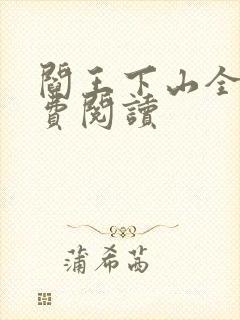 閻王下山全
費閱讀
蒲希茜